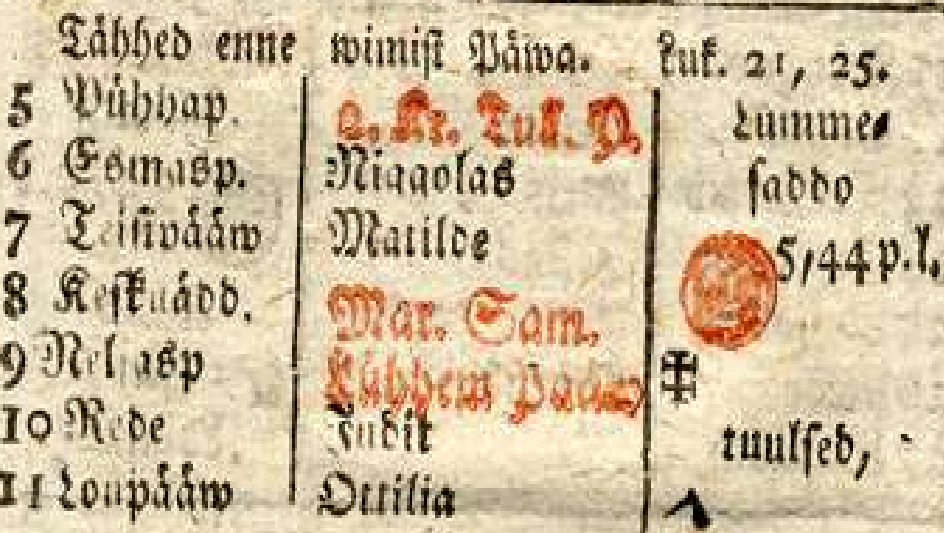 Tähhed enne wimist Päiwa. Luk. 21, 25.
5 Pühhap. 2. Kr. Tul. P. Lumme
6 Esmasp. Niggolas saddo
7 Teisipääw Matilde 5/44 p. l.
8 Kesknädd. Mar. Sam.
9 Neljasp Lühhem Pääw
10 Rede Judit tuulsed,
11 Loupääw Ottilia